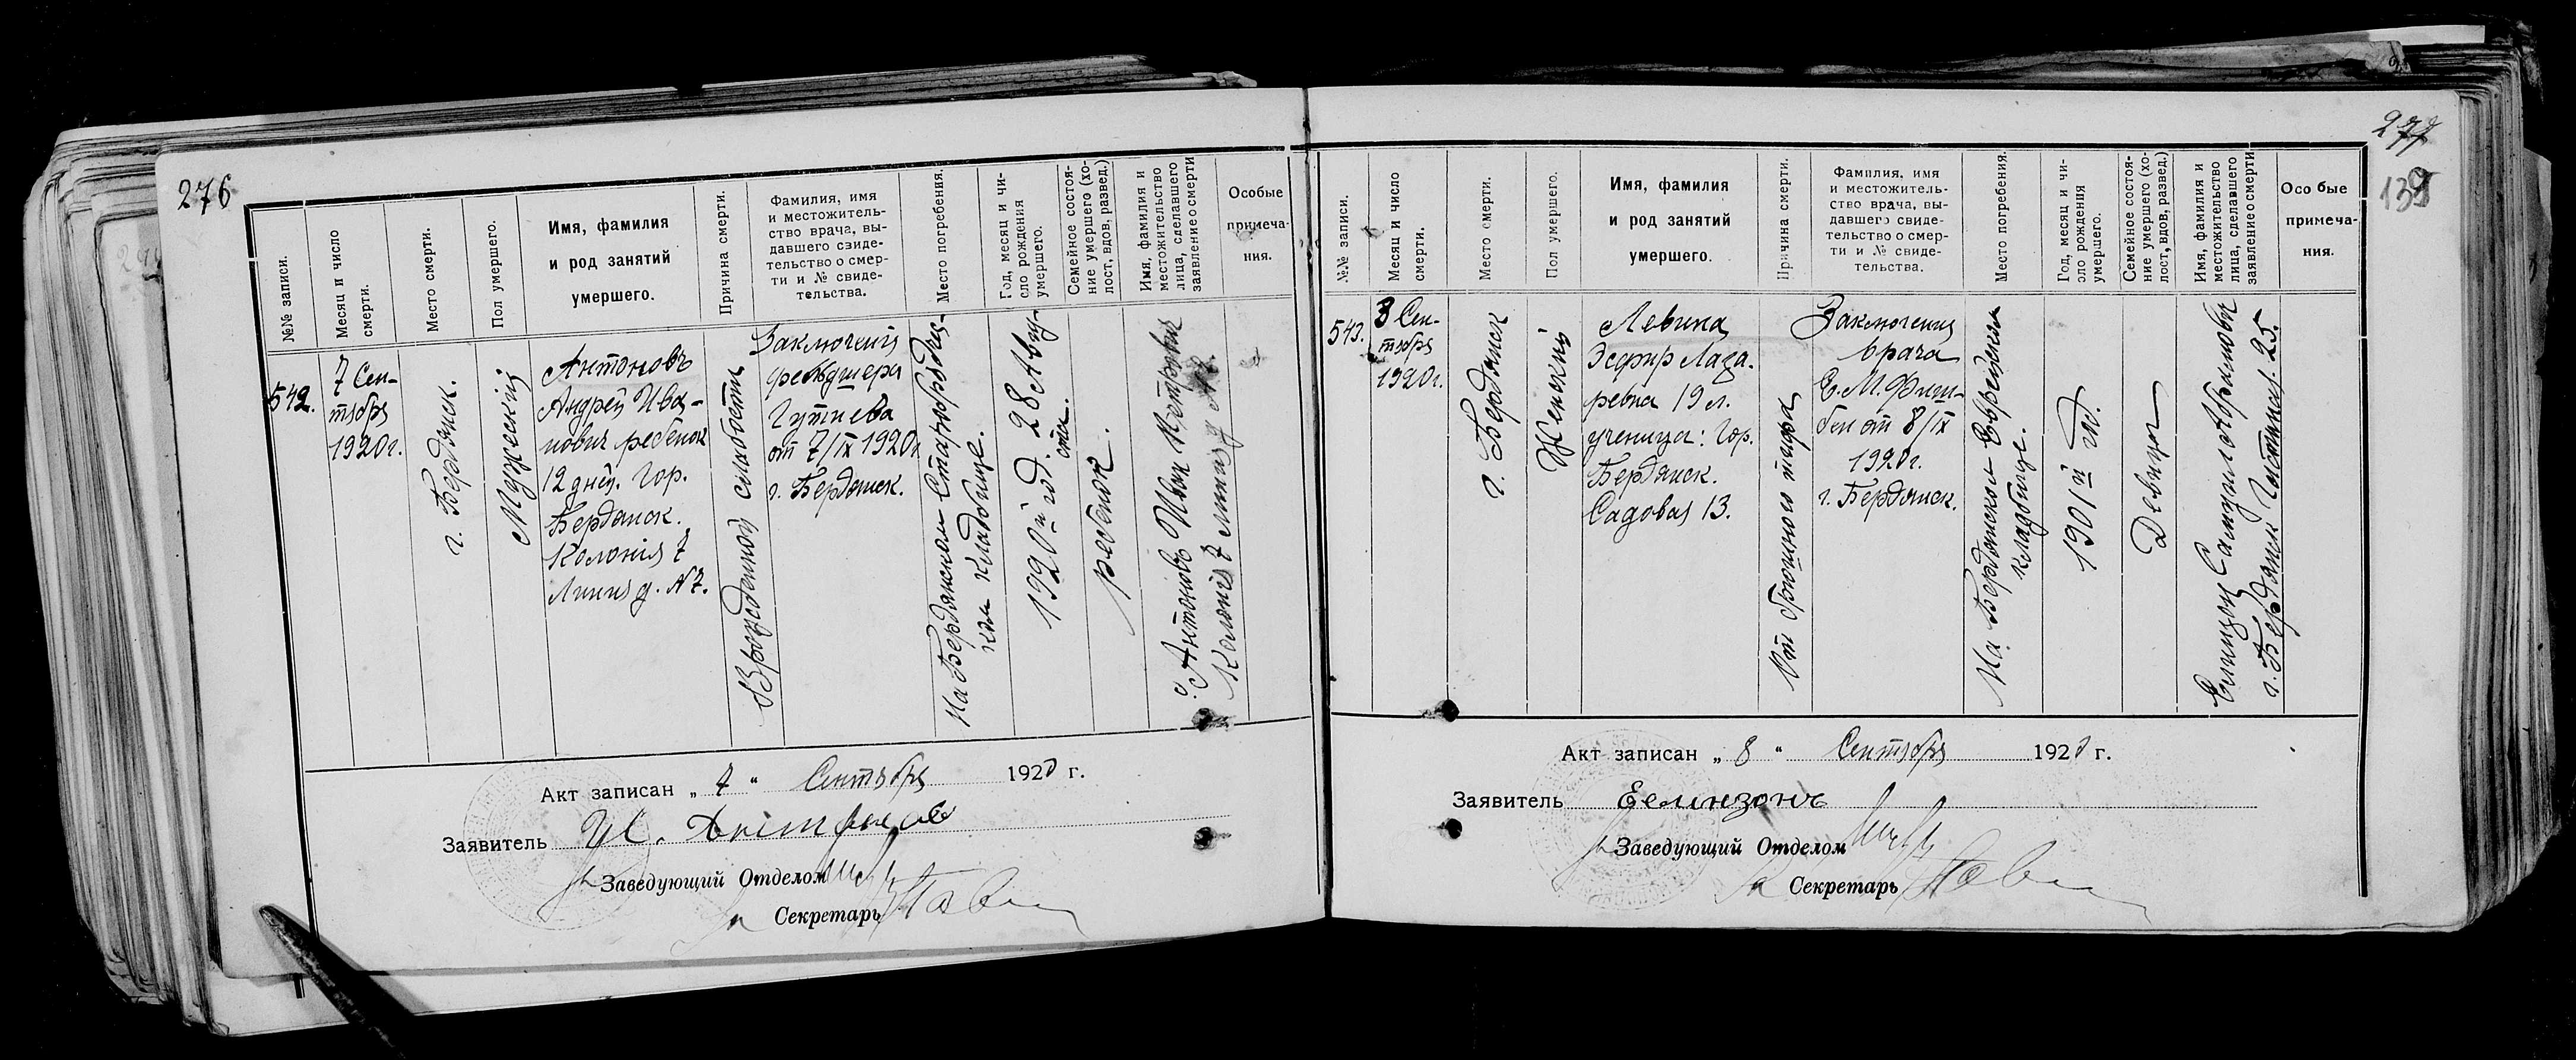 276
№№ записи.
Месяц и число
смерти.
Место смерти.
Пол умершего.
Имя, фамилия
и род занятий
умершего.
Причина смерти.
Фамилия, имя
и местожитель-
ство врача, вы-
давшего свиде-
тельство о смер-
ти и № свиде-
тельства.
Место погребения.
Год, месяц и чи-
сло рождения
умершего.
Семейное состоя-
ние умершего (хо-
лост, вдов, развед.)
Имя, фамилия и
местожительство
лица, сделавшего
заявление о смерти
Особые
примеча-
ния.
542.
7 Сен-
тября
1920 г.
г. Бердянск.
Мужескій
Антоновъ
Андрей Ива-
нович ребенок
12 дней. Гор.
Бердянск.
Колонія 7
Линия д. N 7.
Врожденной слабости
Заключенія
фельдшера
Гутиева
от 7/IX 1920 г
г. Бердянск.
На Бердянском Старообрядчес-
ком кладбище.
1920й год. 28 Авгу-
ста.
ребенок.
Антоновъ Иван Петрович
Колонія 7 линия д N 7.
Акт записан „ 7 “ Сентября 1920 г.
Заявитель И. Антонов
Заведующий Отделом
Секретарь
277
139
№№ записи.
Месяц и число
смерти.
Место смерти.
Пол умершего.
Имя, фамилия
и род занятий
умершего.
Причина смерти.
Фамилия, имя
и местожитель-
ство врача, вы-
давшего свиде-
тельство о смер-
ти и № свиде-
тельства.
Место погребения.
Год, месяц и чи-
сло рождения
умершего.
Семейное состоя-
ние умершего (хо-
лост, вдов, развед.)
Имя, фамилия и
местожительство
лица, сделавшего
заявление о смерти
Особые
примеча-
ния.
543.
8 Сен-
тября
1920 г.
г. Бердянск
Женский
Левина
Эсфир Лаза-
ревна 19 л.
ученица: Гор.
Бердянск.
Садовая 13.
От брюшного тифа
Заключения
врача
Е. М. Фиш-
бен от 8/IX
1920 г.
г. Бердянск.
На Бердянском Еврейском
кладбище.
1901й год.
Девица
Елинзон Самуил Абрамович
г. Бердянск Гостинная. 25.
Акт записан „ 8 “ Сентября 1920 г.
ЗаявительЕелинзонъ
Заведующий Отделом
Секретарь